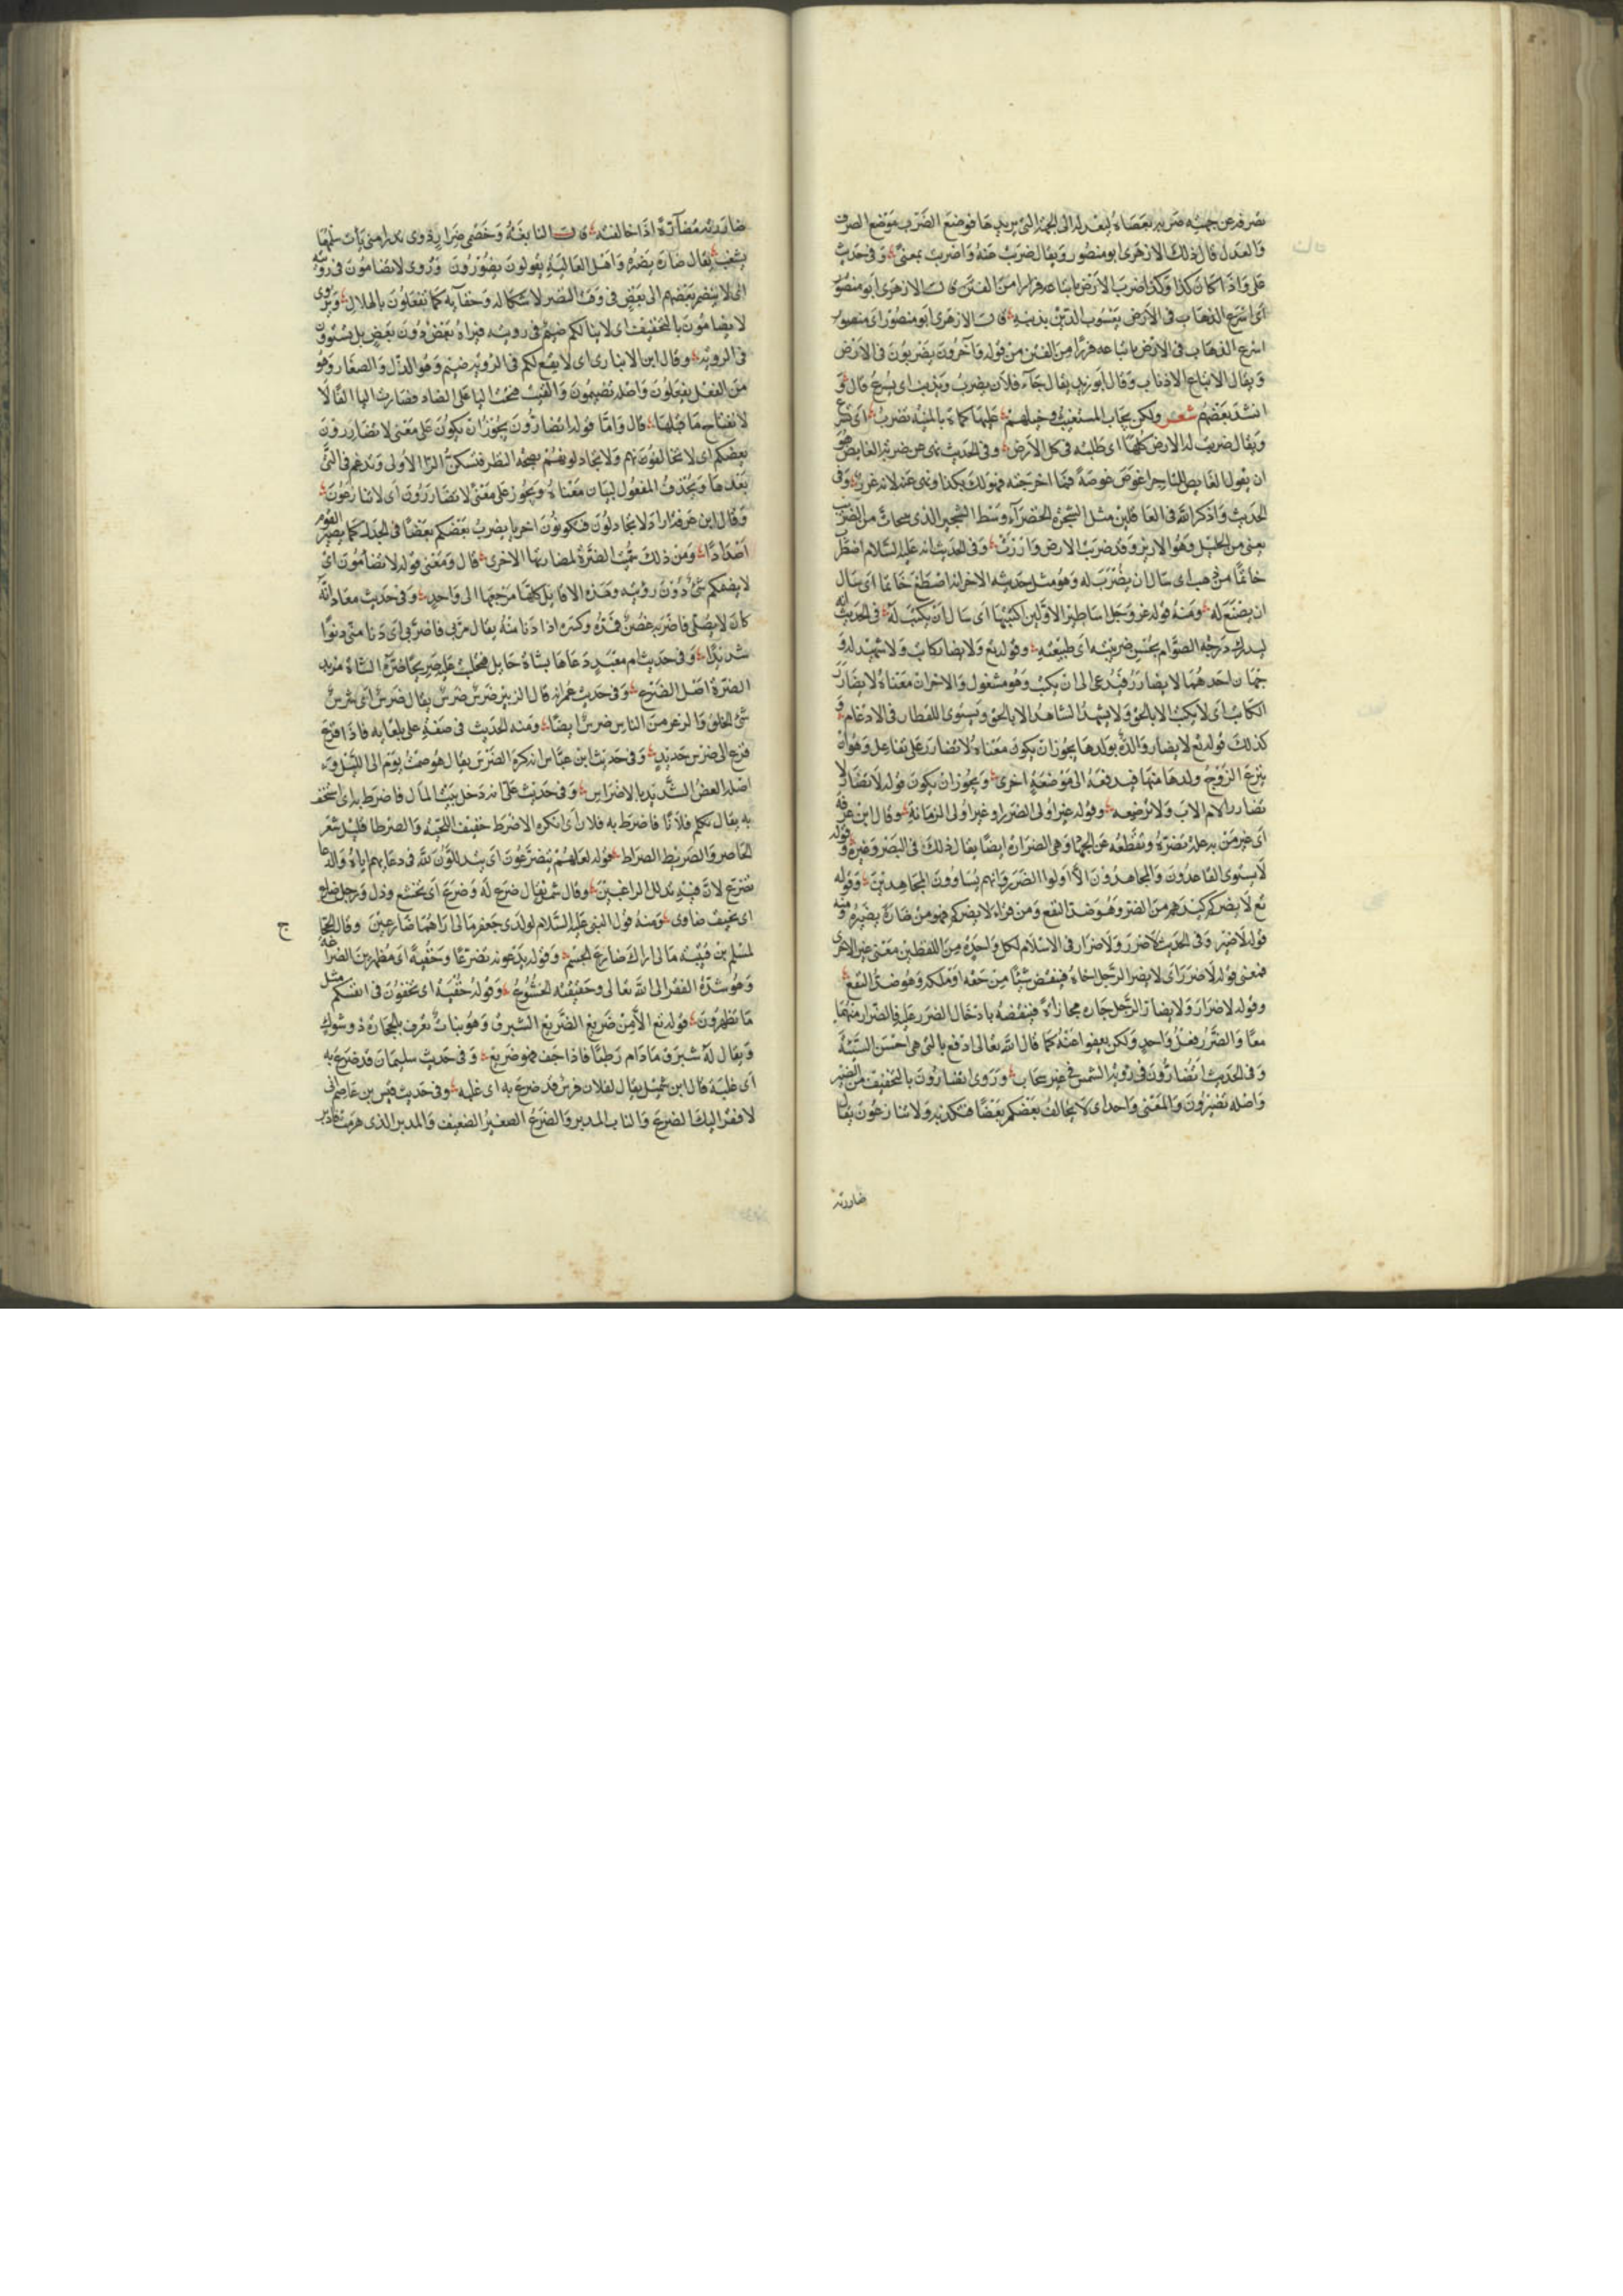 تصرفه عن جهته ضربه بعصاه ليعدله الى الجهة التى يريدها فوضع الضرب موضع الصرف
والعدل قال ذلك الازهرى ابو منصور ويقال ضربت عنه واضربت بمعنى وفى حديث
على واذا كان كذا وكذا ضرب الارض باتباعه فرارا من الفتن قال الازهرى ابو منصور
اى اسرع الذهاب فى الارض يعسوب الدين بذنبه قال الازهرى ابو منصور اى منصور
اسرع الذهاب فى الارض باتباعه فرارا من الفتن من قوله وآخرون يضربون فى الارض
ويقال الاتباع الاذناب وقال ابو زيد يقال جاء فلان يضرب ويذنب اى يسرع قال و
انشد بعضهم شعر ولكن يجاب المستغيث وخيلهم عليها كماة بالمنية تضرب اى تسرع
ويقال ضربت له الارض كلها اى طلبته فى كل الارض وفى الحديث نهى عن ضربة الغايص هو
ان يقول الغايص للتاجر اغوص غوصة فما اخرجته فهو لك بكذا ونهى عنه لانه غرر وفى
الحديث وذاكر الله فى الغافلين مثل الشجرة الخضراء وسط الشجر الذى تحات من الضريب
يعنى من الجليل وهو الازيز وقد ضربت الارض وارزت وفى الحديث انه عليه السلام اضطرب
خاتما من ذهب اى سال ان يضرب له وهو مثل حديثه الاخر انه اصطنع خاتما اى سال
ان يصنع له ومنه قوله عز وجل اساطير الاولين اكتتبها اى سال ان يكتب له فى الحديث انه
ليدرك درجة الصوام بحسن ضريبته اى طبيعته وقوله تع ولا يضار كاتب ولا شهيد له و
جهان احدهما لا يضارر فيدعى الى ان يكتب وهو مشغول والاخر ان معناه لا يضارر
الكاتب اى لا يكتب الا بالحق ولا يشهد الشاهد الا بالحق ويستوى اللفظان فى الادغام و
كذلك قوله تع لا تضار والدة بولدها يجوز ان يكون معناه لا تضارر على تفاعل وهو ان
ينزع الزوج ولدها منها فيدفعه الى مرضعة اخرى ويجوز ان يكون قوله لا تضار لا
تضارر الام الاب ولا ترضعه وقوله غير اولى الضرر او غير اولى الزمانة وقال ابن عرفة
اى غير من به علة تضره وتقطعه عن الجهاد وهى الضرارة ايضا يقال ذلك فى البصر وغيره وقوله
لا يستوى القاعدون والمجاهدون الا اولوا الضرر فانهم يساوون المجاهدين وقوله
تع لا يضركم كيدهم من الضر وهو ضد النفع ومن قراه لا يضركم فهو من ضاره يضيره ومنه
قوله لا ضير وفى الحديث لا ضرر ولا ضرار فى الاسلام لكل واحدة من اللفظين معنى غير الاخرى
فمعنى قوله لا ضرر اى لا يضر الرجل اخاه فينقص شيئا من حقه او ملكه وهو ضد النفع
وقوله لا ضرار ولا يضار الرجل جاره مجازاة فينقصه بادخال الضرر عليه فالضرار منهما
معا والضرر فعل واحد ولكن يعفو عنه كما قال الله تعالى ادفع بالتى هى احسن السيئة
وفى الحديث اتضارون فى روية الشمس فى غير سحاب وروى اتضارون بالتخفيف من الضير
واصله تضيرون والمعنى واحد اى لا يخالف بعضكم بعضا فتكذبه ولا تنازعون يقال
ضاررته
ضاررته مضارة اذا خالفته قال النابغة وخصمى ضرار ذوى تدراء متى يات سلمها
يشغب يقال ضاره يضره واهل العالية يقولون يضورون وروى لا تضامون فى رويته
اى لا ينضم بعضهم الى بعض فى وقت النظر لاشكاله وخفايه كما تفعلون بالهلال ويروى
لا تضامون بالتخفيف اى لا ينالكم ضيم فى رويته فيراه بعض دون بعض بل تستوون
فى الروية وقال ابن الانبارى اى لا يقع لكم فى الروية ضيم وهو الذل والصغار وهو
من الفعل يفعلون واصله تضيمون والقيت فتحة اليا على الضاد فصارت اليا الفا لا
لانفتاح ما قبلها قال واما قوله لا تضارون يجوز ان يكون على معنى لا تضاررون
بعضكم اى لا تخالفونهم ولا تجادلونهم بصحة النظر فتسكن الرا الاولى وتدغم فى التى
بعدها ويحذف المفعول لبيان معناه ويجوز على معنى لا تضاررون اى لا تنازعون
وقال ابن عرفة اراد لا تجادلون فتكونون احزبا يضرب بعضكم بعضا فى الجدال كما يصير القوم
اضدادا ومن ذلك سميت الضرة لمضارتها الاخرى قال ومعنى قوله لا تضامون اى
لا يضمكم شئ دون رويته وهذه الاقاويل كلها مرجعها الى واحد وفى حديث معاذ انه
كان لا يصلى فاضربه غصن فمده وكسره اذا دنا منه يقال مر بى فاضر بى اى دنا منى دنوا
شديدا وفى حديث ام معبد دعاها بشاة حايل فتحلبت عليه صريحا ضرة الشاة مزبد
الضرة اصل الضرع وفى حديث عمر انه قال الزبير ضرس ضرس يقال ضرس اى شرس
سئ الخلق والزعر من الناس ضرس ايضا ومنه الحديث فى صفة على تلعابه فاذا فزع
فزع الى ضرس حديد وفى حديث ابن عباس انه كره الضرس يقال هو صمت يوم الى الليل و
اصله العض الشديد بالاضراس وفى حديث على انه دخل بيت المال فاضرط به اى استخف
به يقال تكلم فلانا فاضرط به فلان اى انكره الاضرط خفيف اللحية والضرطا قليل شعر
الحاصر والضريط الضراط قوله لعلهم يتضرعون اى يتذللون لله فى دعايهم اياه والدعا
تضرع لان فيه تذلل الراغبين وقال شمر يقال ضرع له وضرع اى تخشع وذل ورجل ضارع
اى نحيف ضاوى ومنه قول النبى عليه السلام لولدى جعفر مالى اراهما ضارعين وقال الحجاج
ج
لمسلم بن قتيبة مالى اراك ضارع الجسم وقوله تدعونه تضرعا وخفية اى مظهرين الضراعة
وهو شدة الفقر الى الله تعالى وحقيقته الخشوع وقوله خفية اى تخفون فى انفسكم مثل
ما تظهرون قوله تع الا من ضريع الضريع الشبرق وهو نبات يعرف بالحجاز ذو شوك
ويقال له شبرق مادام رطبا فاذا جف فهو ضريع وفى حديث سليمان قد ضرع به
اى غلبه قال ابن شميل يقال لفلان فرس قد ضرع به اى غلبه وفى حديث قيس بن عاصم انى
لافقر اليك الضرع والناب المدبر والضرع الصغير الضعيف والمدبر الذى هرمت فادبر